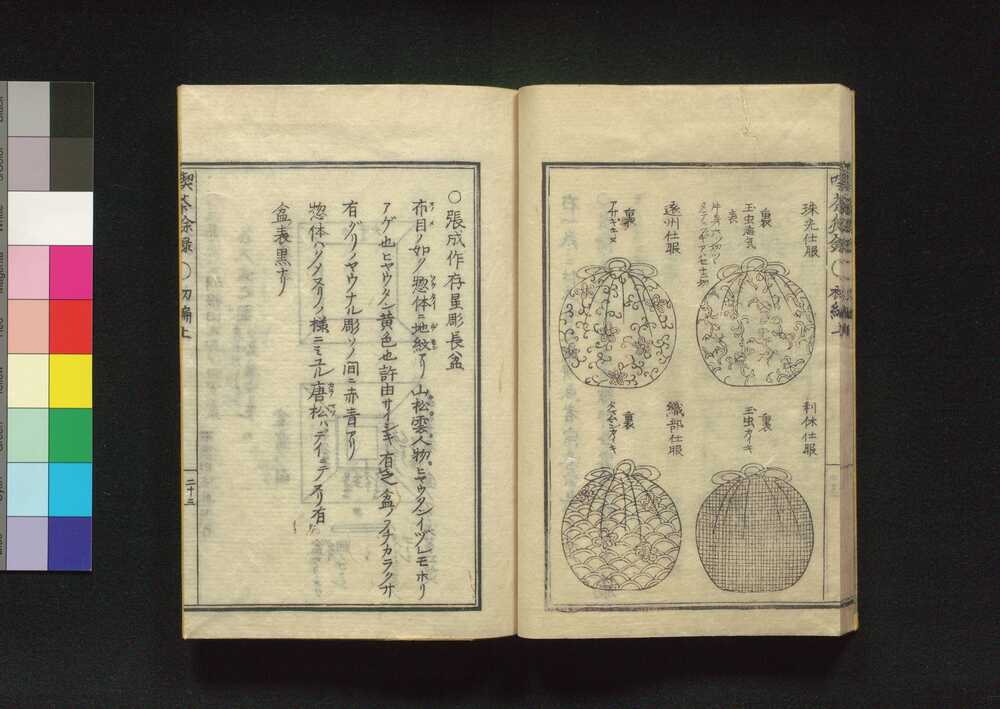 珠光仕服
裏
玉虫海気
利休仕服
裏
玉虫カイキ
遠州仕服
裏
アサギキヌ
織部仕服
裏
タマムシカイキ
喫茶余録 ○ 初編上
○張成作存星彫長盆
布目ノ如ク惣体ニ地紋アリ 山松雲人物ヒヤウタンイヅレモホリ
アゲ也ヒヤウタン黄色也許由サイシキ有之盆ノフチカラクサ
有グリノヤウナル彫ソノ間ニ赤青アリ
惣体ハツメヌリノ様ニミユル唐松ハデイニテヌリ有
盆表黒ナリ
喫茶余録 ○ 初編上
二十三